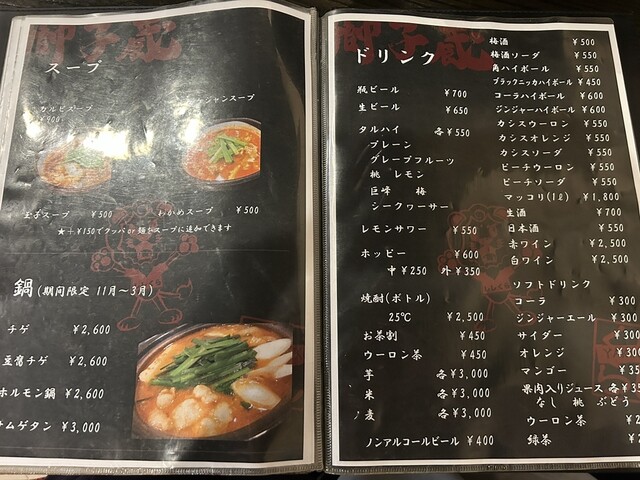 獅子蔵
スープ
カルビスープ
ジャンスープ
玉子スープ ¥500
わかめスープ ¥500
★+¥150でクッパor麺をスープに追加できます
鍋 (期間限定 11月〜3月)
チゲ ¥2,600
豆腐チゲ ¥2,600
ホルモン鍋 ¥2,600
サムゲタン ¥3,000
獅子蔵
ドリンク
瓶ビール ¥700
生ビール ¥650
タルハイ 各¥550
プレーン
グレープフルーツ
桃 レモン
巨峰 梅
シークワーサー
レモンサワー ¥550
ホッピー ¥600
中¥250 外¥350
焼酎(ボトル)
25℃ ¥2,500
お茶割 ¥450
ウーロン茶 ¥450
芋 各¥3,000
米 各¥3,000
麦 各¥3,000
ノンアルコールビール ¥400
梅酒 ¥500
梅酒ソーダ ¥550
角ハイボール ¥550
ブラックニッカハイボール ¥450
コーラハイボール ¥600
ジンジャーハイボール ¥600
カシスウーロン ¥550
カシスオレンジ ¥550
カシスソーダ ¥550
ピーチウーロン ¥550
ピーチソーダ ¥550
マッコリ(1ℓ) ¥1,800
生酒 ¥700
日本酒 ¥550
赤ワイン ¥2,500
白ワイン ¥2,500
ソフトドリンク
コーラ ¥300
ジンジャーエール ¥300
サイダー ¥300
オレンジ ¥300
マンゴー
果肉入りジュース 各
なし 桃 ぶどう
ウーロン茶
緑茶